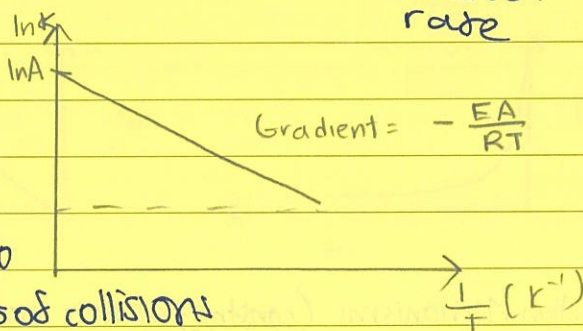 rate
ln K
ln A
Gradient = - EA/RT
s of collisions
1/T (K⁻¹)